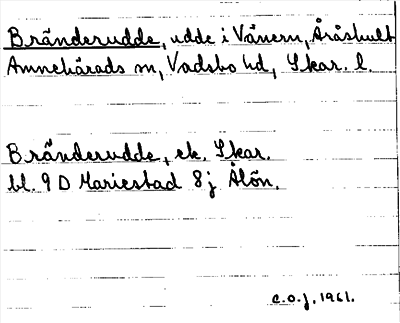 Bränderudde, udde i Vänern, Åråshult
Amnehärads sn, Vadsbo hd, Skar. l.
Bränderudde, ek. Skar.
bl. 9 D Mariestad 8 j Ålön.
C.O.J. 1961.